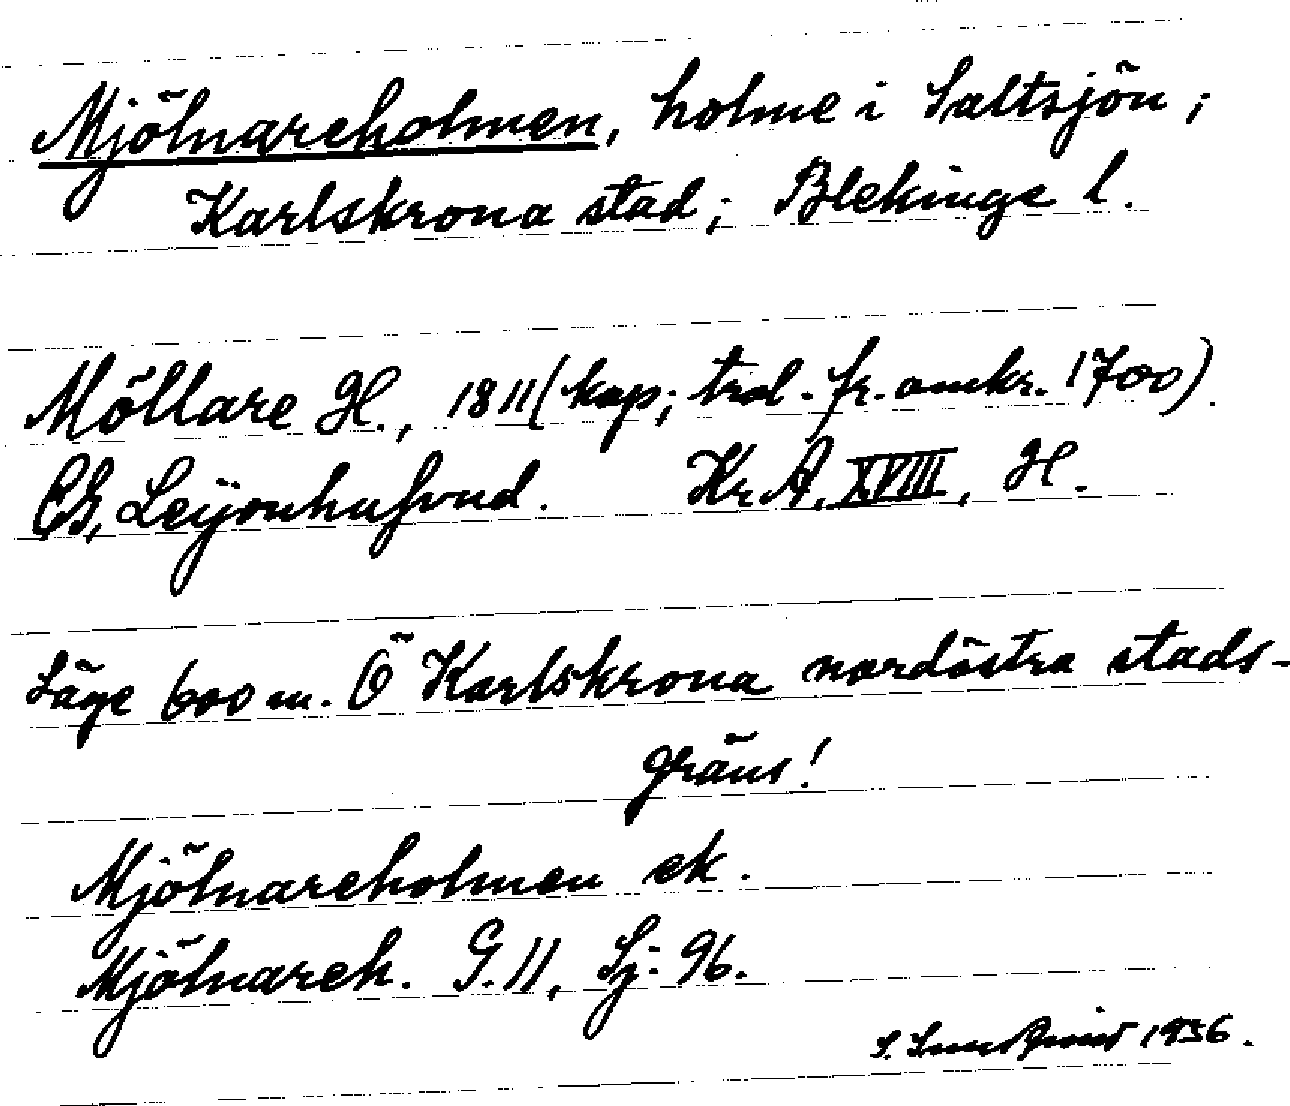 Mjölnareholmen, holme i Saltsjön;
Karlskrona stad; Blekinge l.
Möllare H., 1811 (kop; trol. fr. omkr. 1700).
Leijonhufvud. Kr. A. XVIII, H.
Läge 600 m. Ö Karlskrona nordöstra stads-
gräns!
Mjölnareholmen ek.
Mjölnareh. G. 11, Sj. 96.
S. 1936.